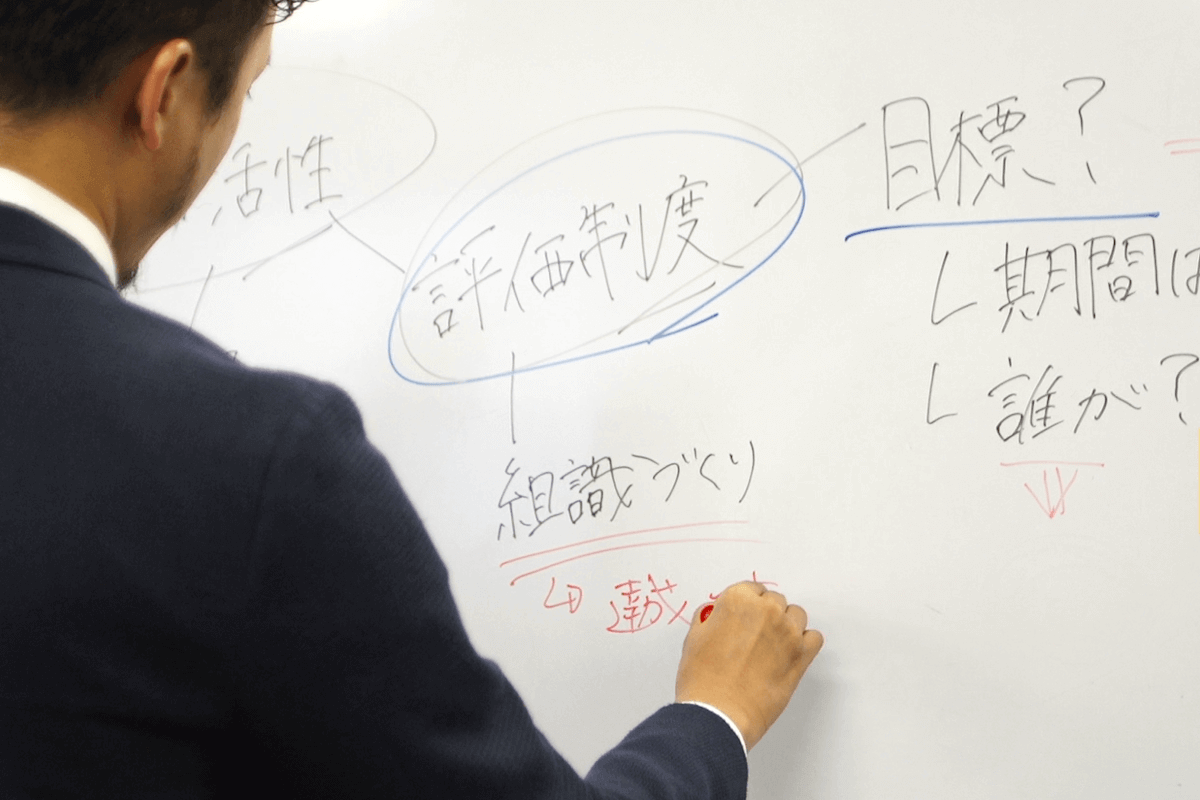 活性
評価制度
目標?
└期間は
└誰が?
組識づくり